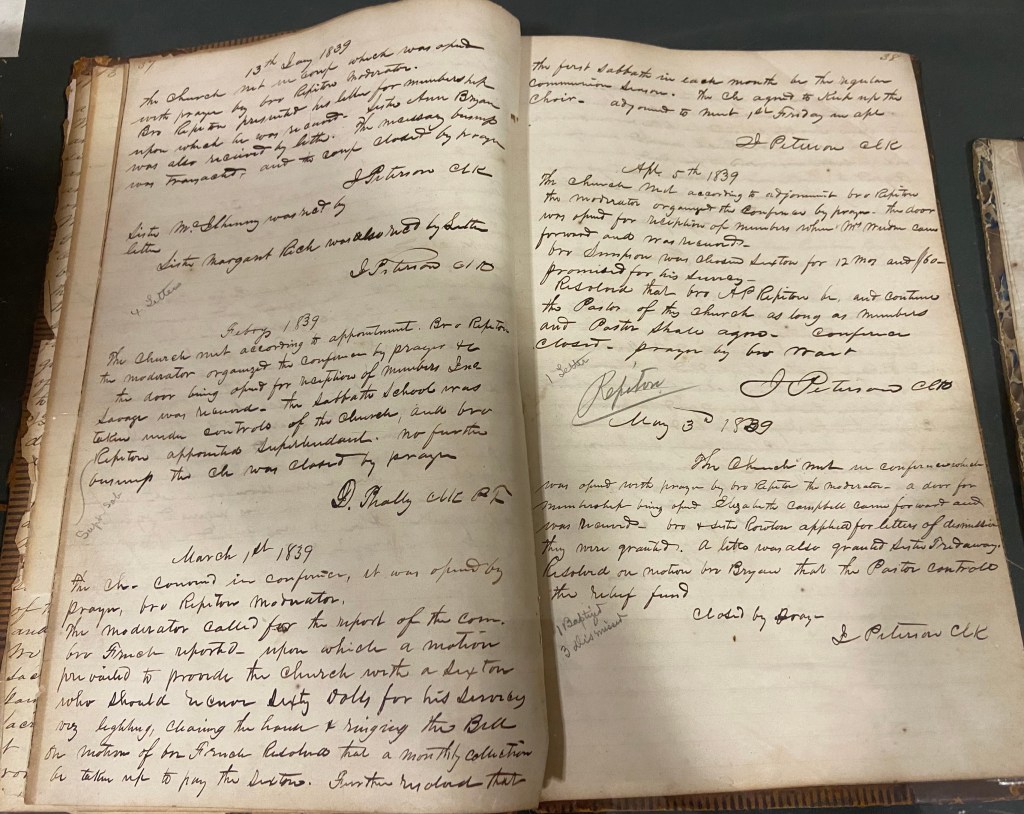 37
13th Jany 1839
the Church met in conf which was opend
with prayer by bro Repiton Moderator.
Bro Repiton presented his letter for membership
upon which he was receivd. Sister Ann Bryan
was also received by letter. The necessary business
was transacted, and the conf closed by prayer
J Peterson Clk
Sister McIlhenny was recd by
letter
Sister Margaret Rich was also recd by Letter
J Peterson Clk
4 Letters
Feby 1839
The Church met according to appointment. Bro Repiton
the moderator organized the conference by prayer &c
the door being opend for reception of members
Savage was receivd - the Sabbath School was
taken under controls of the Church, and bro
Repiton appointed Superlendant. no further
business the Ch was closed by prayer
Supt. Sab.
D. Thally Clk P.T.
March 1st 1839
the Ch- convend in conference, it was opend by
prayer, bro Repiton Moderator.
The moderator called for the report of the com.
bro French reported - upon which a motion
prevailed to provide the Church with a Sexton
who should receive Sixty Dolls for his Services
viz lighting, cleaning the house & ringing the Bell
On motion of bro French Resolved that a monthly collection
be taken up to pay the Sexton. Further resolved that
38
the first Sabbath in each month be the regular
Communion Season. the Ch agred to Keep up the
Choir - adjornd to meet 1st Friday in apl
J Peterson Clk
Apl 5th 1839
The Church met according to adjornment bro Repiton
the moderator organized the conference by prayer. the door
was opend for reception of members when Mr came
forward and was receivd -
bro Simpson was chosen Sexton for 12 mos and $60-
promised for his Survey -
Resolved that bro A P Repiton be, and continue
the Pastor of this Church as long as members
and Pastor Shall agree - Conference
closed - prayer by bro Wait
1 Letter
Repiton
J Peterson Clk
May 3d 1839
The Church met in conference which
was opend with prayer by bro Repiton the moderator - a door for
membership being opd Elizabeth Campbell came forward and
was receivd - bro & Sister Rowton applied for letters of dismission
they were granted. A letter was also granted Sister Tredaway.
Resolved on motion bro Bryan that the Pastor controll
the relief fund
closed by pray-
1 Baptized
3 Dismissed
J Peterson Clk